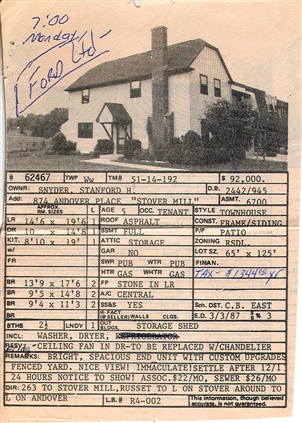 7:00
Monday
Ford Ltd
# 62467 TWP WW TM# 51-14-192 $ 92,000.
OWNR: SNYDER, STANFORD H. D.B. 2442/945
Add: 874 ANDOVER PLACE "STOVER MILL" ASMT. 6700
APPROX. RM. SIZES L AGE 5 OCC. TENANT STYLE TOWNHOUSE
LR 14'6 x 19'6 1 ROOF ASPHALT CONST. FRAME/SIDING
DR 10 x 14'8 1 BSMT FULL P/P PATIO
KIT. 8'10 x 19' 1 ATTIC STORAGE ZONING RSDL.
w/ GAR NO LOT SZ. 65' x 125'
FR SWR PUB WTR PUB FINAN.
HTR GAS WHTR GAS TAX - $1344.00
BR 13'9 x 17'6 2 FP STONE IN LR
BR 9'5 x 14'8 2 A/C CENTRAL
BR 9'4 x 11'3 2 SS&S YES Sch. DST. C.B. EAST
BR R-FACT. (@ SELLER) WALLS CLGS. E.D. 3/3/87 % 3
BTHS 2½ LNDY 1 OUT BLDGS. STORAGE SHED
INCL: WASHER, DRYER, REFRIGERATOR
CEILING FAN IN DR-TO BE REPLACED W/CHANDELIER
REMARKS: BRIGHT, SPACIOUS END UNIT WITH CUSTOM UPGRADES
FENCED YARD. NICE VIEW! IMMACULATE! SETTLE AFTER 12/1
24 HOURS NOTICE TO SHOW! ASSOC. $22/MO, SEWER $26/MO
DIR: 263 TO STOVER MILL, RUSSET TO L ON STOVER AROUND TO
L ON ANDOVER L.B.# R4-002 This information, though believed accurate, is not guaranteed.